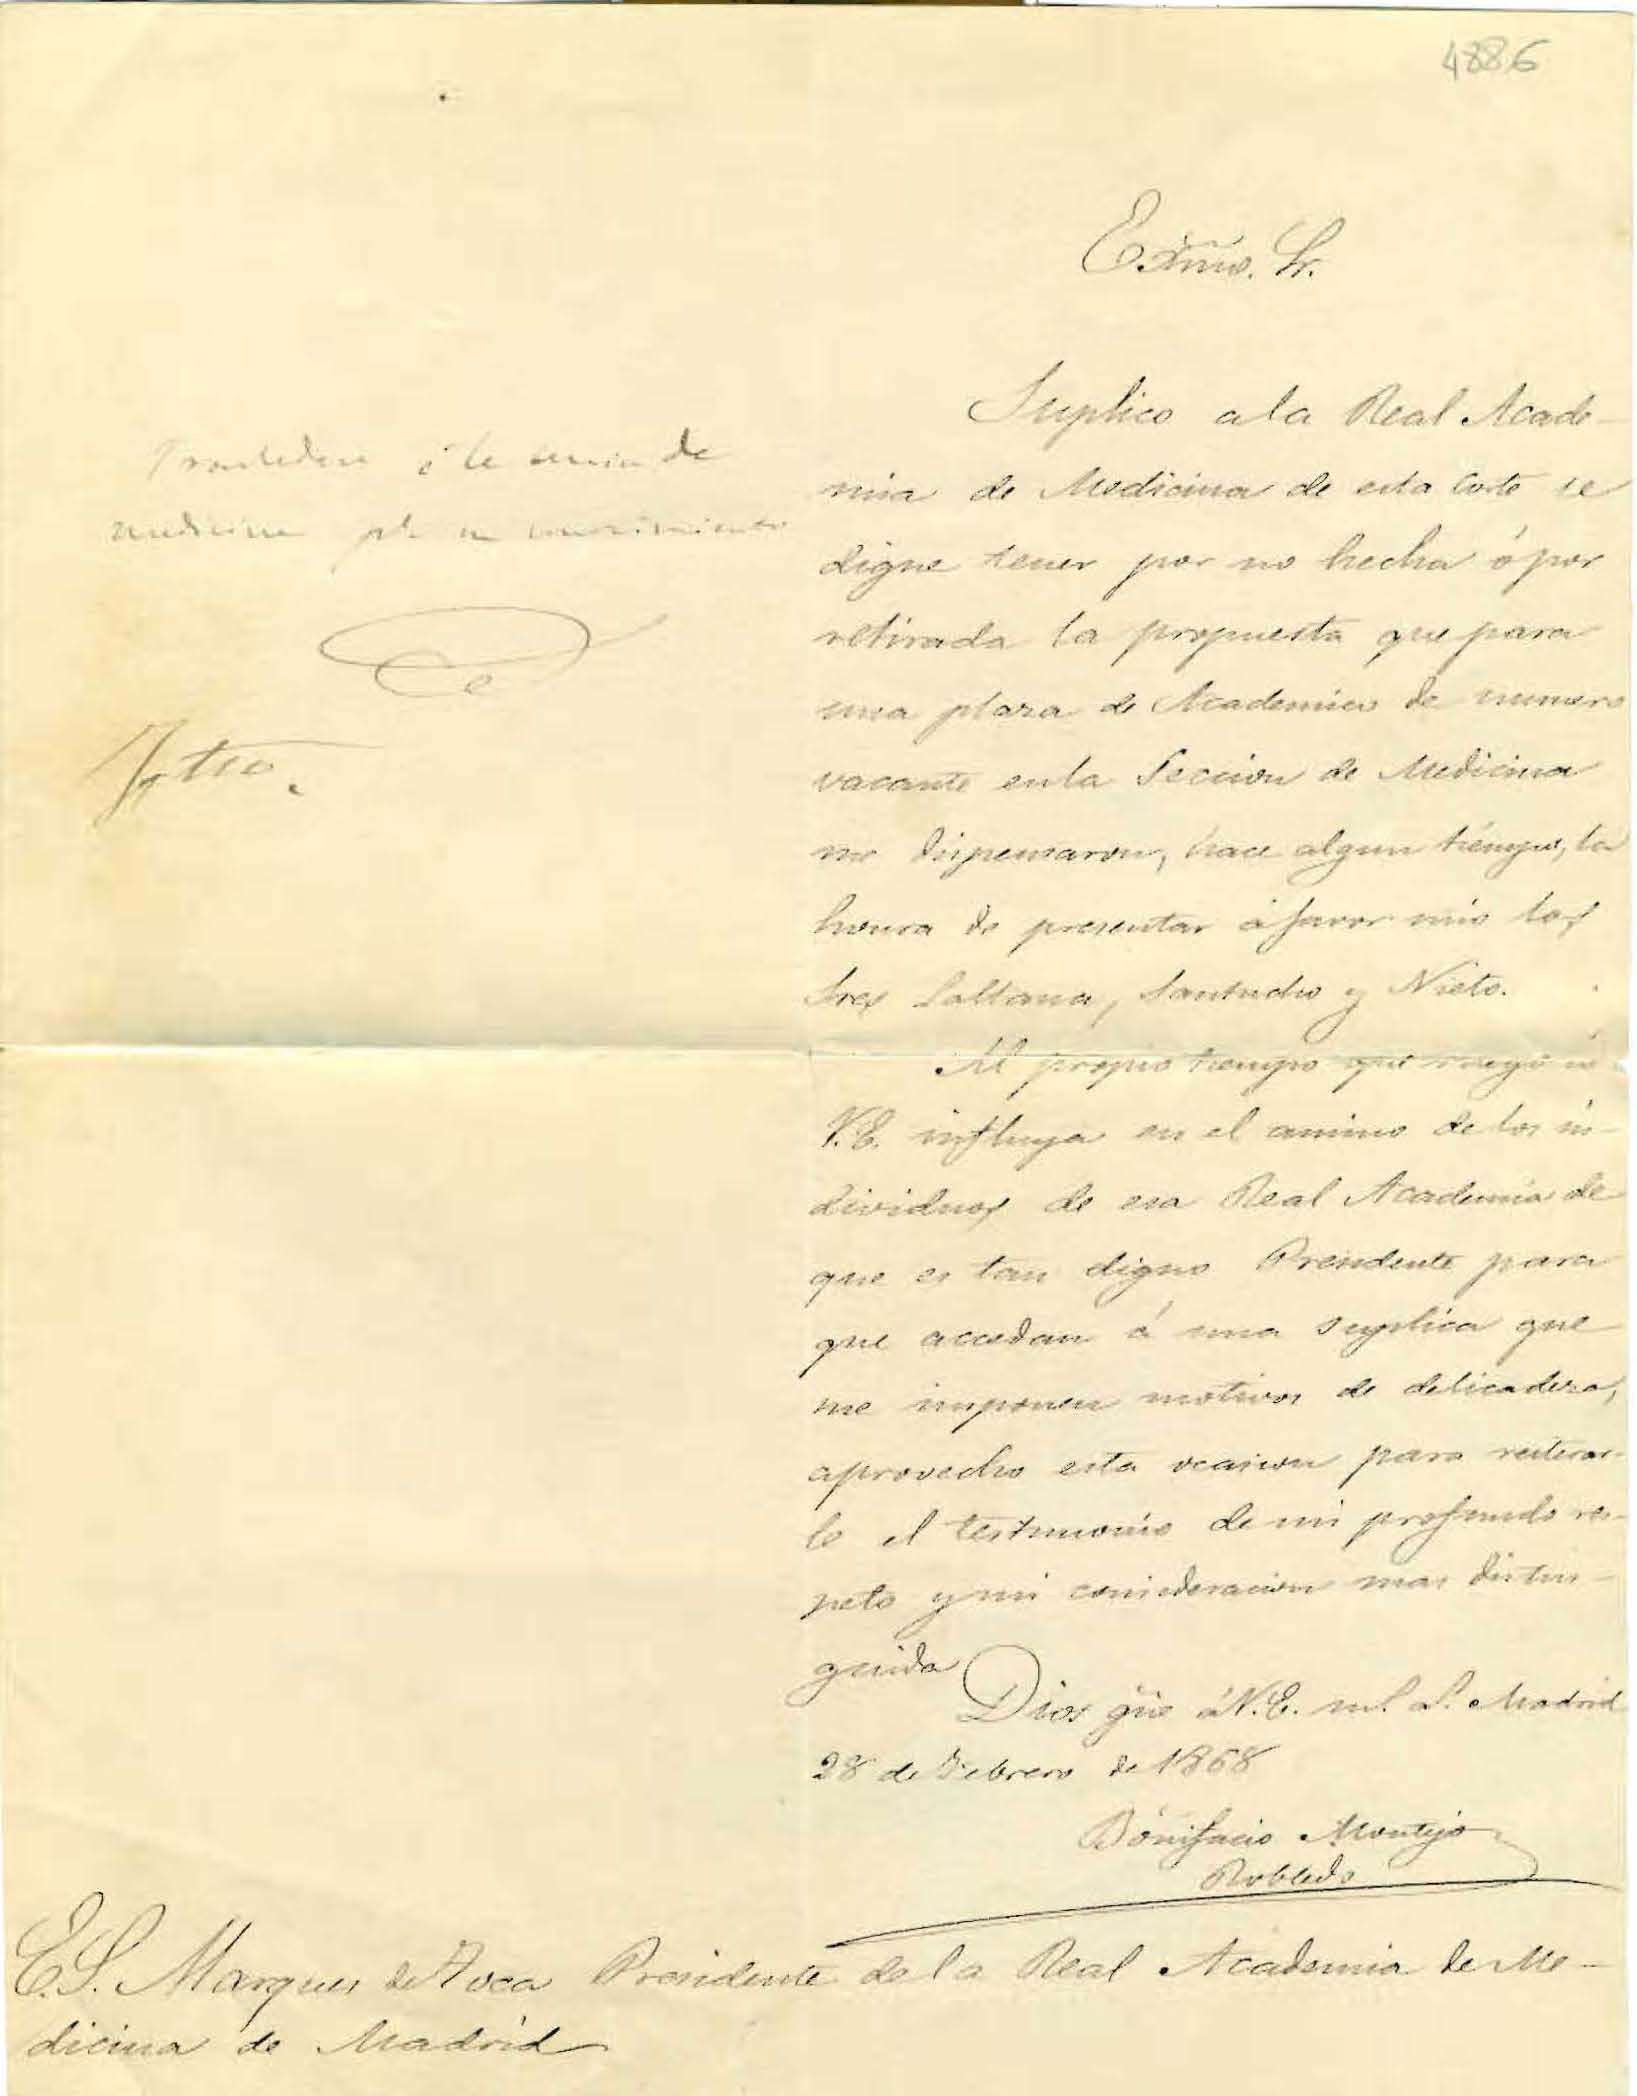 4886
Exmo. Sr.
Suplico a la Real Acade-
mia de Medicina de esta Corte se
digne tener por no hecha ó por
retirada la propuesta que para
una plaza de Academico de numero
vacante en la Seccion de Medicina
me dispensaron, hace algun tiempo, la
honra de presentar á favor mio los
Sres Saltana, Santucho y Nieto.
Al propio tiempo que ruego á
V.E. influya en el animo de los in-
dividuos de esa Real Academia de
que es tan digno Presidente para
que accedan á una suplica que
me imponen motivos de delicadeza,
aprovecho esta ocasion para reiterar-
le el testimonio de mi profundo res-
peto y mi consideracion mas distin-
guida
Dios gue á V.E. m.s a.s Madrid
28 de Febrero de 1868
Bonifacio Montejo
Robledo
á la de
medicina
E.S. Marques de Toca Presidente de la Real Academia de Me-
dicina de Madrid